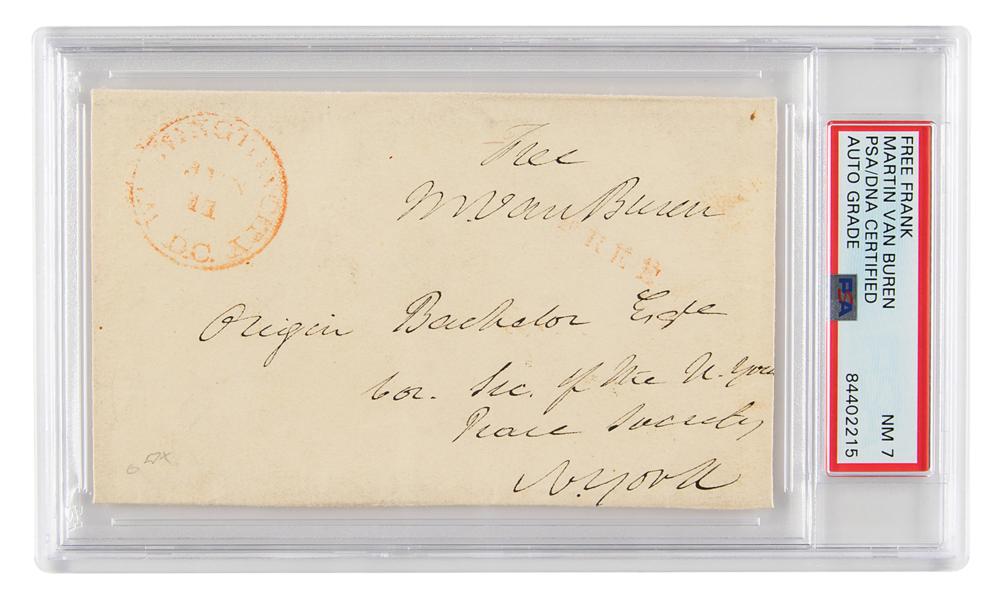 WASHINGTON CITY D.C.
11
Free
M. Van Buren
FREE
Origin Bachelor Esqr
Cor. Sec. of the N. York
Peace Society
N. York
FREE FRANK
MARTIN VAN BUREN
PSA/DNA CERTIFIED
AUTO GRADE
PSA
NM 7
84402215